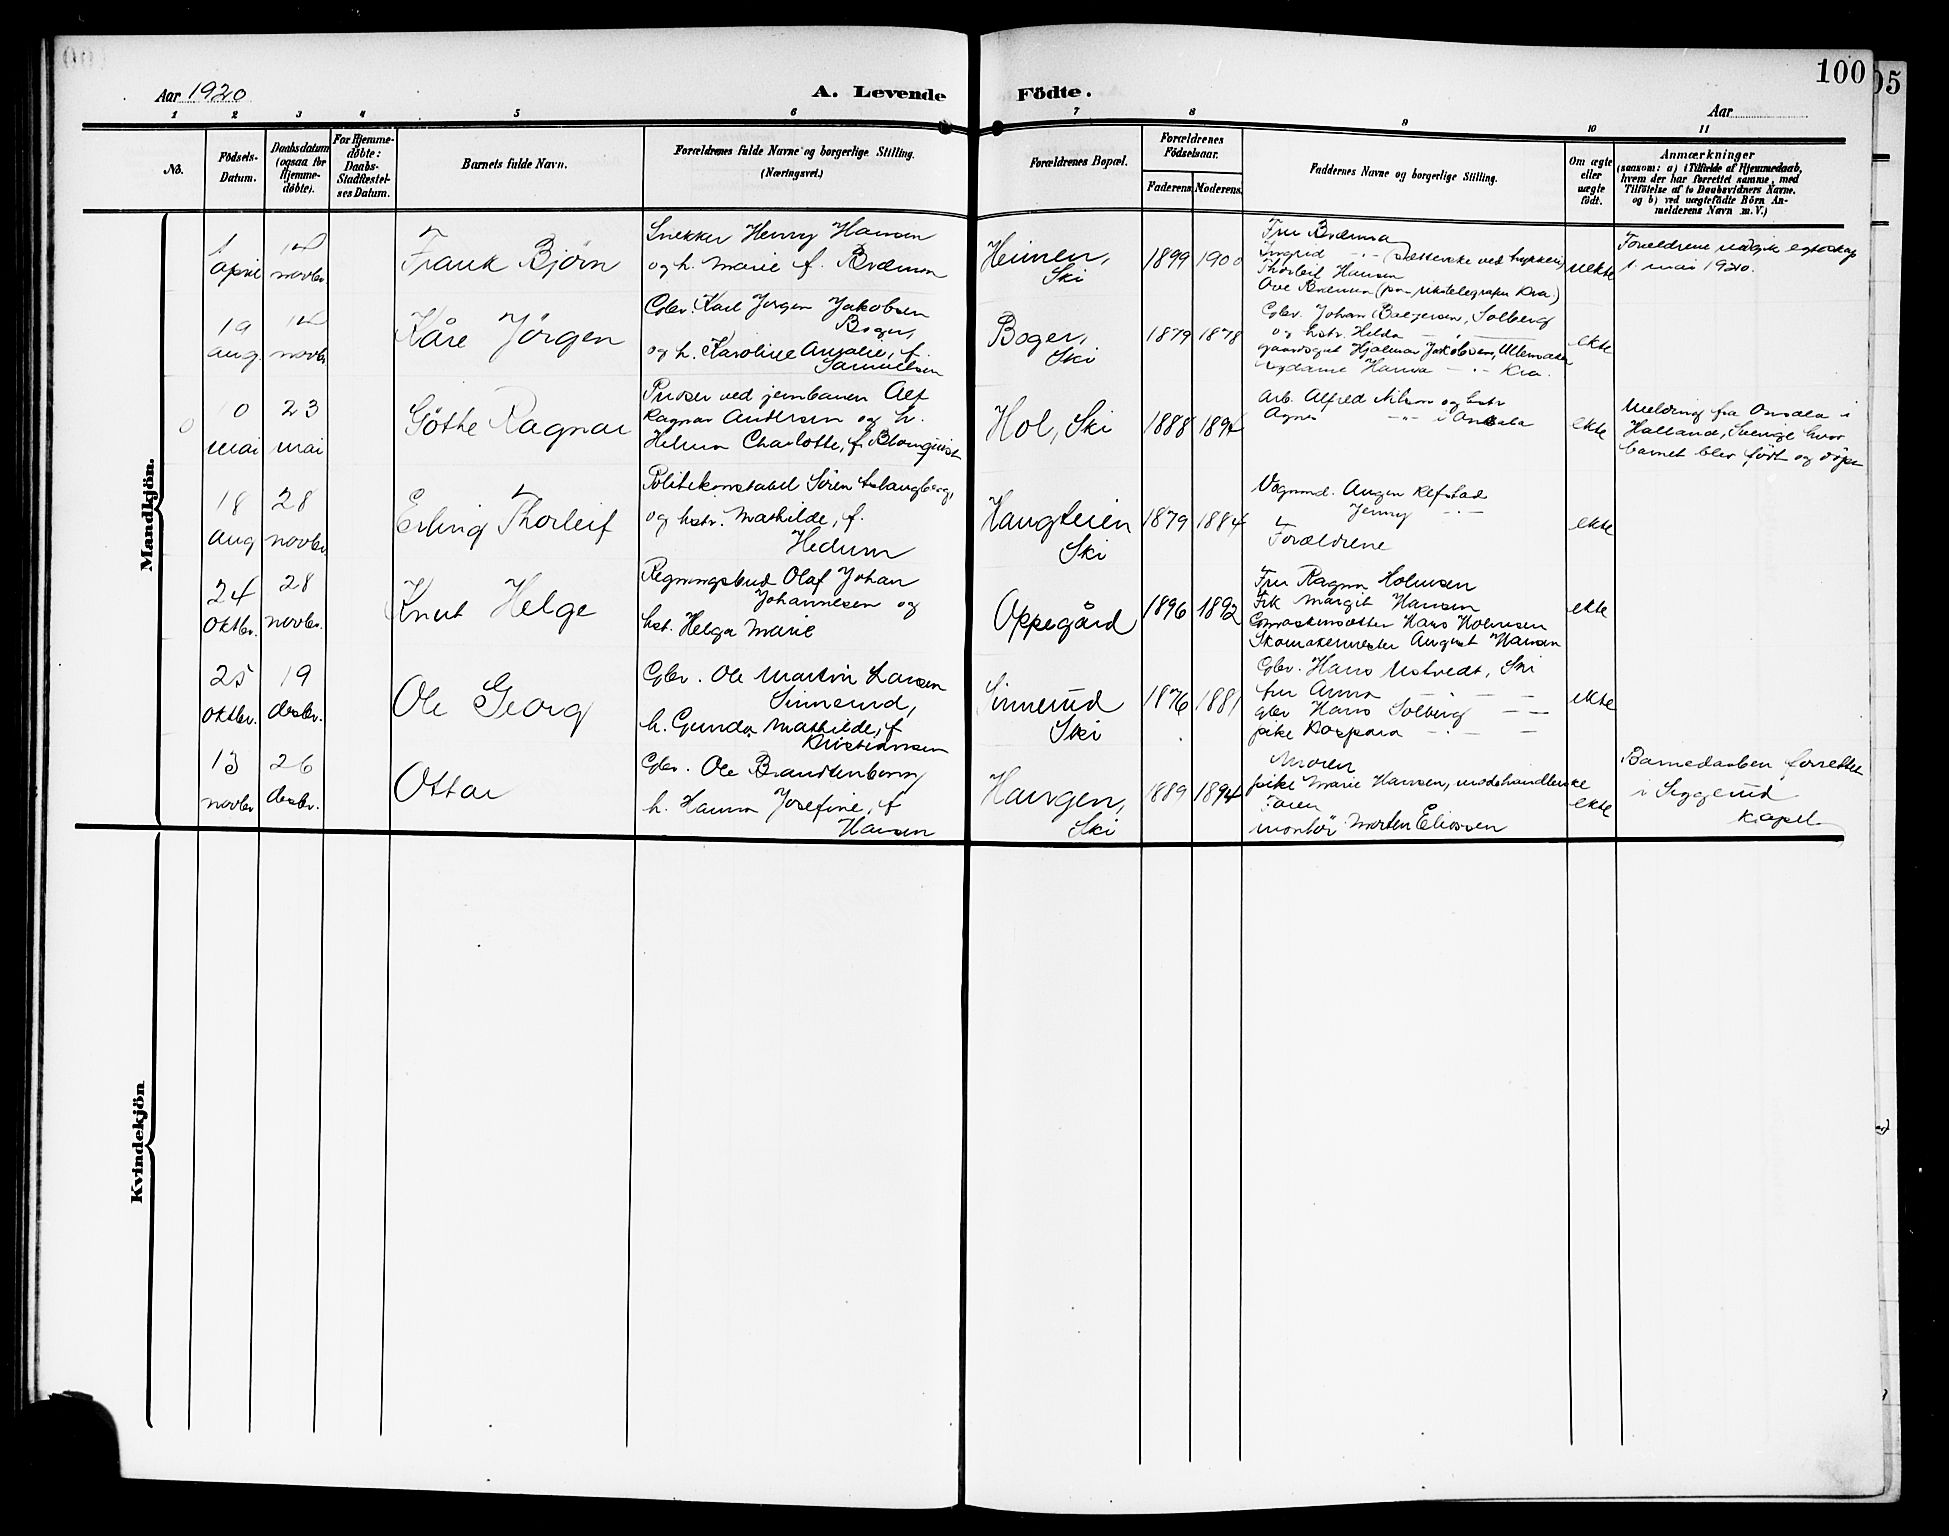 100
05
Aar 1920
A. Levende
Födte.
Aar
1 2 3 4 5 6 7 8 9 10 11
No.
Födsels-
Datum.
Daabsdatum
(ogsaa for
Hjemme-
døbte).
For Hjemme-
døbte:
Daabs-
Stadfæstel-
ses Datum.
Barnets fulde Navn.
Forældrenes fulde Navne og borgerlige Stilling.
(Næringsvei.)
Forældrenes Bopæl.
Forældrenes
Födselsaar.
Faderens.
Moderens.
Faddernes Navne og borgerlige Stilling.
Om ægte
eller
uægte
født.
Anmærkninger
(saasom: a) i Tilfælde af Hjemmedaab,
hvem der har forrettet samme, med
Tilföielse af to Daabsvidners Navne.
og b) ved uægtefødte Börn An-
melderens Navn m. V.)
Mandkjön.
1
april
14
novbr.
Frank Bjørn
Snekker Henry Hansen
og h. Marie f.
Heimen,
Ski
1899
1900
Fru
Ingrid
Thorleif Hansen
Ove
uekte
Foreldrene egteskap
1 mai 1920.
19
aug.
14
novbr.
Kåre Jörgen
Gbr. Karl Jörgen Jakobsen
Boger,
og h. Karoline Amalie, f.
Samuelsen
Boger,
Ski
1879
1878
Gbr. Johan Solberg
og hstr. Hilda
Hjalmar Jakobsen,
Kra.
ekte
10
mai
23
mai
Göthe Ragnar
ved jernbanen Alf
Ragnar Andersen og h.
Helma Charlotte, f. Blomqvist
Hol, Ski
1888
1894
Arb. Alfred Nilson og hstr
Agnes i Onsala
ekte
Melding fra Onsala i
Halland, Sverige hvor
barnet blev født og döpt
18
aug
28
novbr.
Erling Thorleif
Politikonstabel Sören
og hstr. Mathilde, f.
Hedum
Haugteien
Ski
1879
1884
Refstad
Jenny
Forældrene
ekte
24
oktbr.
28
novbr.
Knut Helge
Regningsbud Olaf Johan
Johannesen og
hst. Helga Marie
Oppegård
1896
1892
Fru Ragna Holmsen
Frk Margit Hansen
Hans Holmsen
Skomakermester August Hansen
ekte
25
oktbr.
19
desbr.
Ole Georg
Gbr. Ole Martin Larsen
Sinnerud,
h. Gunda Mathilde, f
Kristiansen
Sinnerud
Ski
1876
1881
Gbr. Hans Ustvedt, Ski
fru Anna
gbr Hans Solberg
pike Kaspara
ekte
13
novbr
26
desbr.
Ottar
Gbr. Ole Brandtenborg
h. Hanna Josefine, f
Hansen
Haugen,
Ski
1889
1894
Moren
pike Marie Hansen, modehandlerske
Faren
montör Morten Eliassen
ekte
Barnedaaben forrettet
i Siggerud
Kapel
Kvindekjön